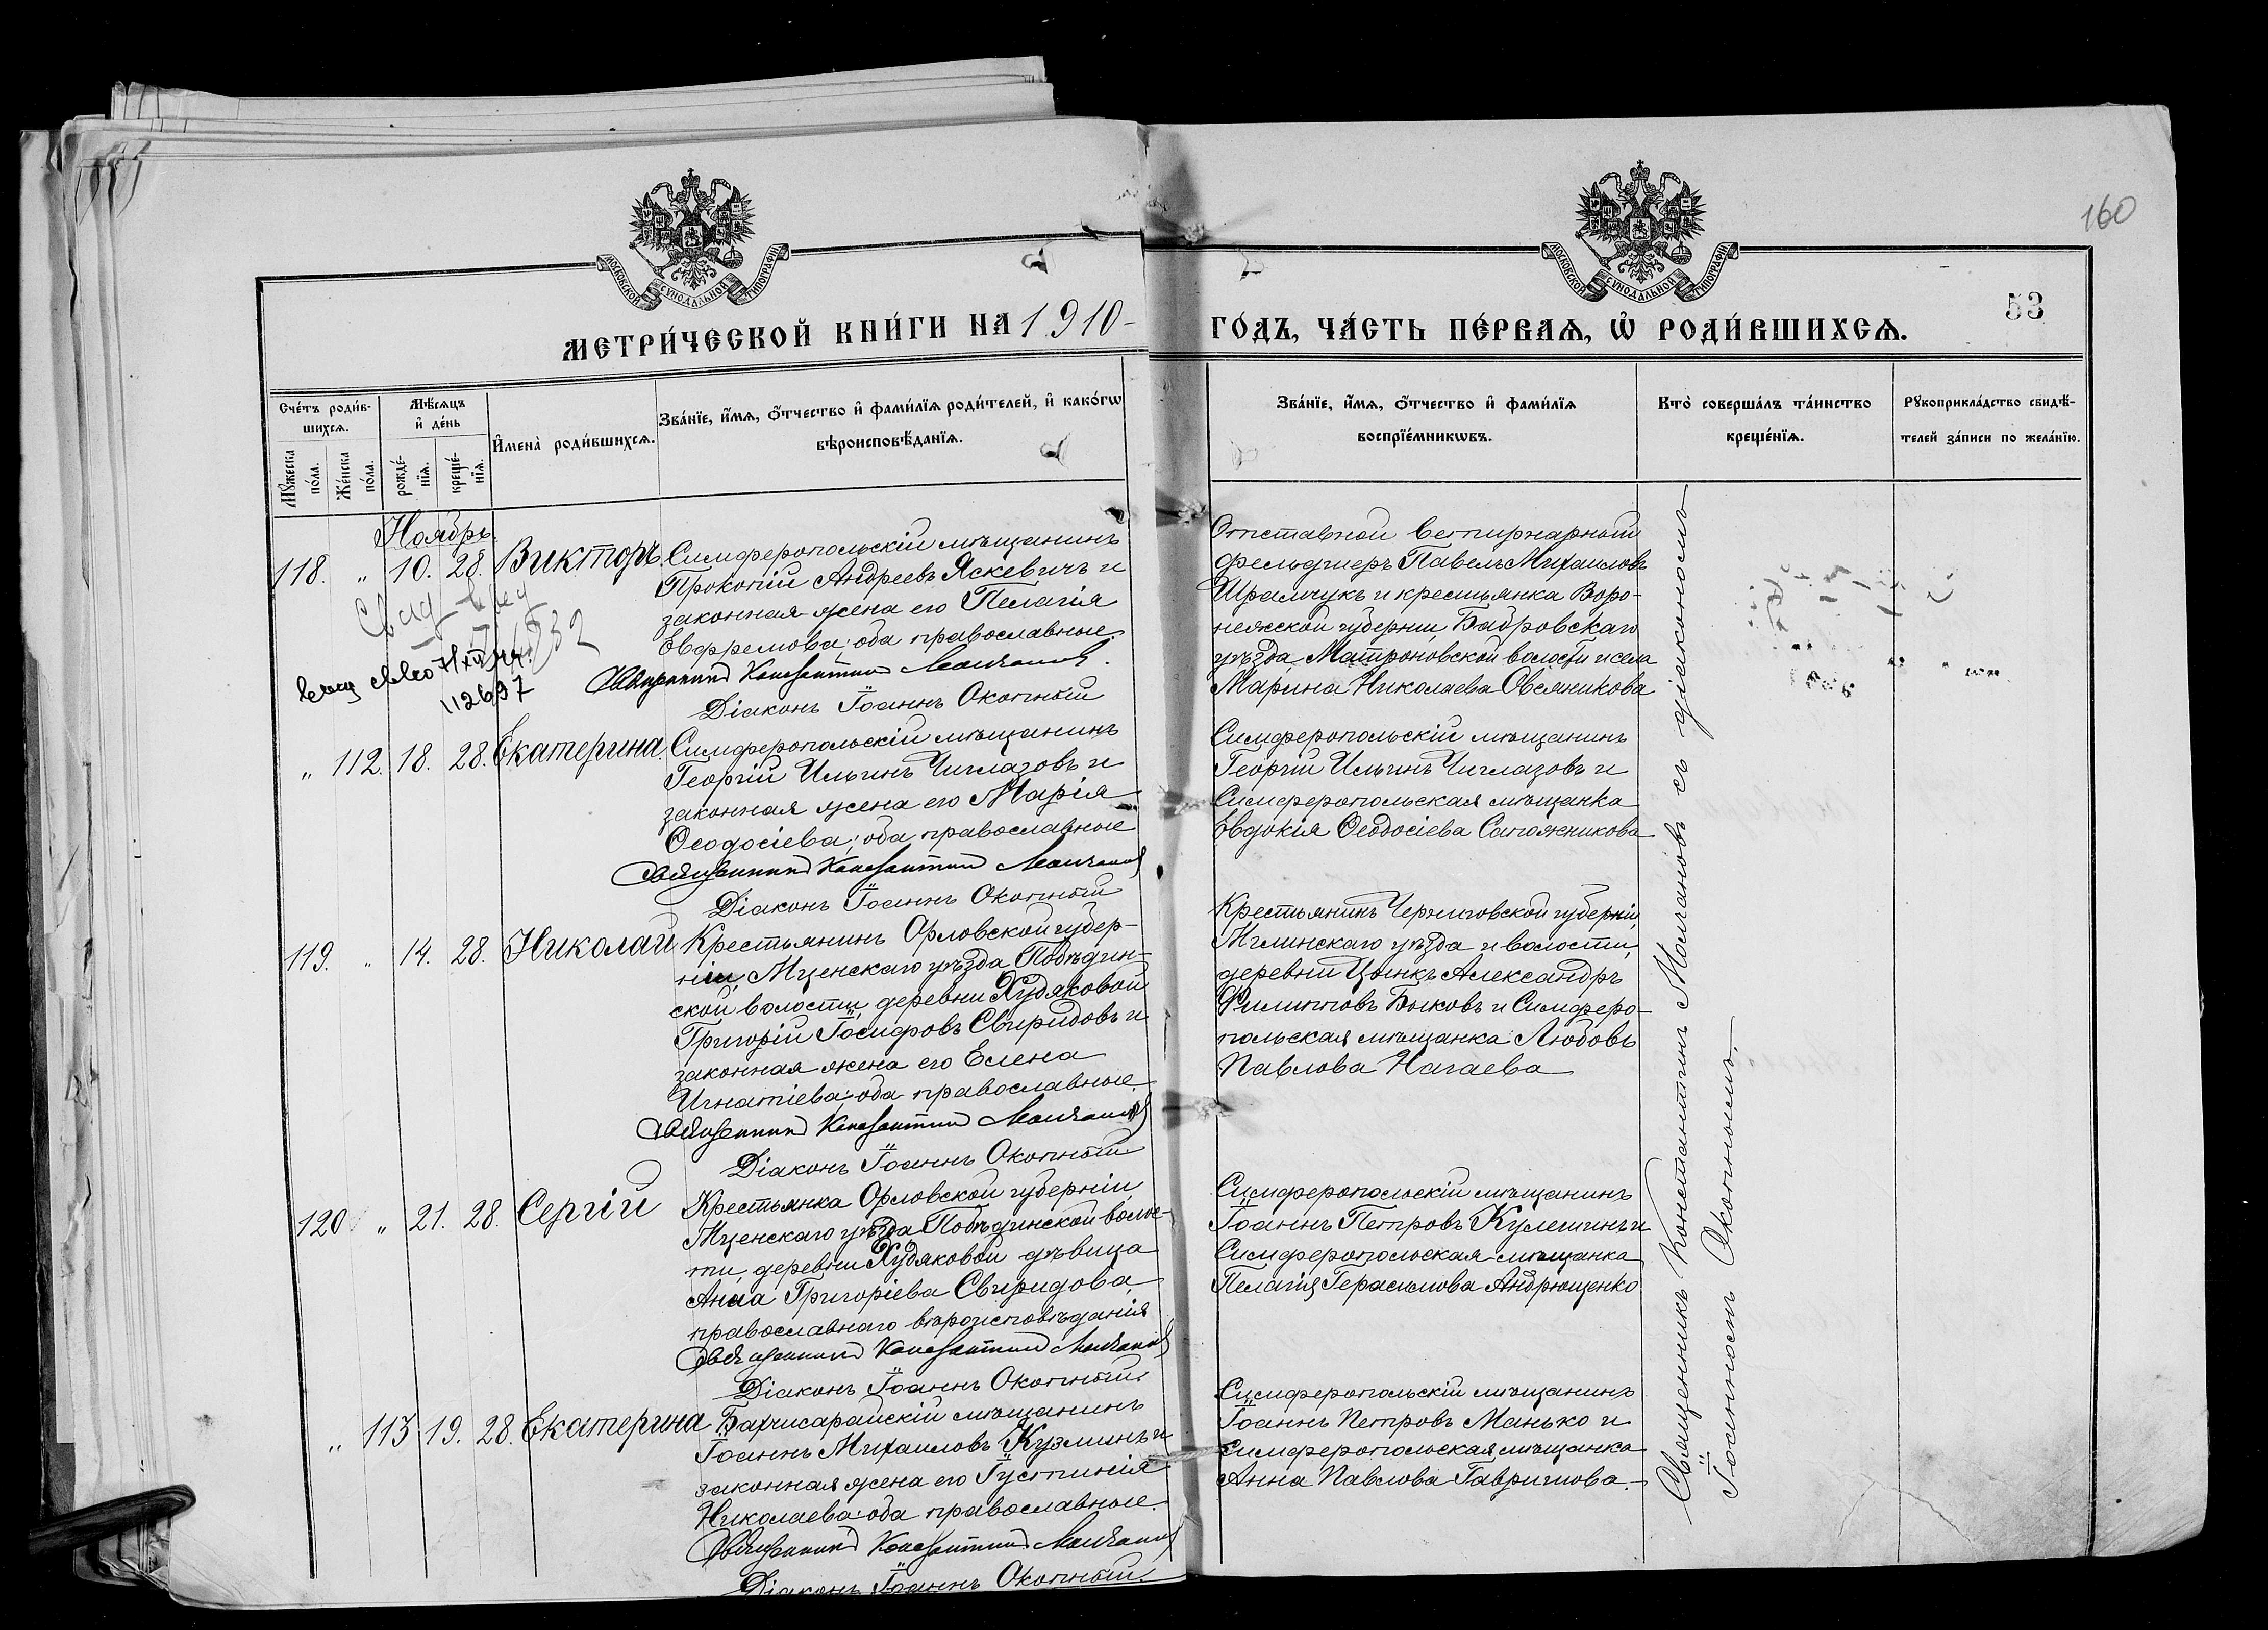 160
МОСКОВСКОЙ СѴНОДАЛЬНОЙ ТИПОГРАФІИ
МОСКОВСКОЙ СѴНОДАЛЬНОЙ ТИПОГРАФІИ
53
МЕТРИ́ЧЕСКОЙ КНИ́ГИ НА 1910-
ГО́ДЪ, ЧА́СТЬ ПЕ́РВАѦ, Ѡ҆ РОДИ́ВШИХСѦ.
Сче́тъ роди́в-
шихсѧ.
Мѣ́сѧцъ
и҆ де́нь
И҆мена̀ роди́вшихсѧ.
Зва́нїе, и҆́мѧ, ѻ҆́тчество и҆ фами́лїѧ роди́телей, и҆ како́гѡ
вѣроисповѣ́данїѧ.
Зва́нїе, и҆́мѧ, ѻ҆́тчество и҆ фами́лїѧ
воспрїе́мникѡвъ.
Кто̀ соверша́лъ та́инство
креще́нїѧ.
Рꙋкоприкла́дство свидѣ́-
телей за́писи по жела́нїю.
Мꙋ́жеска
по́ла.
Же́нска
по́ла.
рожде́-
нїѧ.
креще́-
нїѧ.
Ноябрь.
118. „ 10. 28. Викторъ
Симферопольскій мѣщанинъ
Прокопій Андреевъ Яскевичъ и
законная жена его Пелагія
Евфремова; оба православные.
Священникъ Константинъ Молчановъ.
Діаконъ Іоаннъ Окопный
112697
Отставной ветиринарный
фельдшеръ Павелъ Михаиловъ
Шрамчукъ и крестьянка Воро-
нежской губерніи, Бобровскаго
уѣзда, Матроновской волости и села
Марина Николаева Овсяникова
„ 112. 18. 28. Екатерина.
Симферопольскій мѣщанинъ
Георгій Ильинъ Чиглазовъ и
законная жена его Марія
Ѳеодосіева; оба православные
Священникъ Константинъ Молчановъ
Діаконъ Іоаннъ Окопный
Симферопольскій мѣщанинъ
Георгій Ильинъ Чиглазовъ и
Симферопольская мѣщанка
Евдокія Ѳеодосіева Сапожникова
119. „ 14. 28. Николай
Крестьянинъ Орловской губер-
ніи, Мценскаго уѣзда Побѣдин-
ской волости, деревни Худяковой
Григорій Іосифовъ Свиридовъ и
законная жена его Елена
Игнатіева; оба православные.
Священникъ Константинъ Молчановъ
Діаконъ Іоаннъ Окопный
Крестьянинъ Черниговской губерніи,
Мглинскаго уѣзда и волости,
деревни Цынкъ Александръ
Филипповъ Быковъ и Симферо-
польская мѣщанка Любовь
Павлова Нагаева
120 „ 21. 28. Сергій
Крестьянка Орловской губерніи,
Мценскаго уѣзда Побѣдинской волос-
ти, деревни Худяковой дѣвица
Анна Григоріева Свиридова,
православнаго вѣроисповѣданія
Священникъ Константинъ Молчановъ
Діаконъ Іоаннъ Окопный
Симферопольскій мѣщанинъ
Іоаннъ Петровъ Кулешинъ и
Симферопольская мѣщанка
Пелагія Герасимова Андрющенко
„ 113 19. 28. Екатерина
Бахчисарайскій мѣщанинъ
Іоаннъ Михаиловъ Кузминъ и
законная жена его Іустинія
Николаева; оба православные.
Священникъ Константинъ Молчановъ
Діаконъ Іоаннъ Окопный
Симферопольскій мѣщанинъ
Іоаннъ Петровъ Манько и
симферопольская мѣщанка
Анна Павлова Гавришова.
Священникъ Константинъ Молчановъ съ діакономъ
Іоанномъ Окопнымъ.